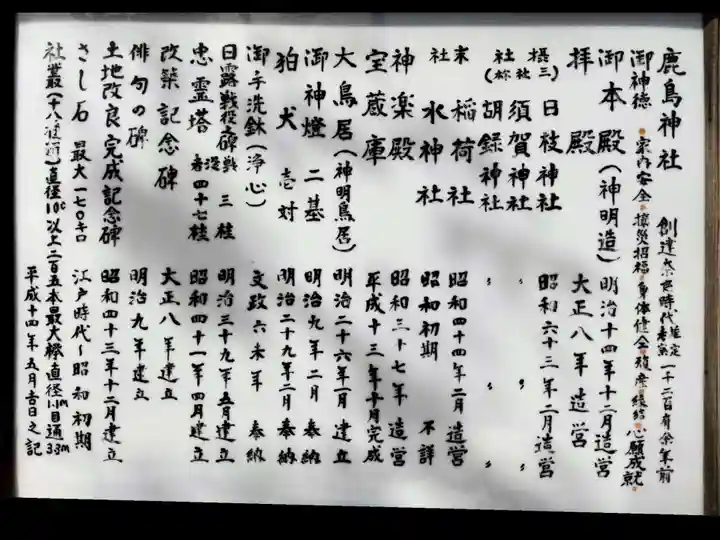 鹿島神社 創建奈良時代推定 考案 一千二百有余年前
御神徳 家内安全 攘災招福 身体健全 殖産 縁結 心願成就
御本殿(神明造) 明治十四年十二月造営
拝殿 大正八年造営
摂三社 日枝神社 昭和六十三年二月造営
須賀神社 〃 〃
(社称) 胡録神社 〃 〃
末社 稲荷社 昭和四十四年二月造営
水神社 昭和初期 不詳
神楽殿 昭和三十七年造営
宝蔵庫 平成十三年十月完成
大鳥居(神明鳥居) 明治二十六年一月建立
御神燈 二基 明治九年二月奉納
狛犬 壱対 明治二十九年二月奉納
御手洗鉢(浄心) 文政六未年 奉納
日露戦役碑 三桂 明治三十九年五月建立
忠霊塔 戦没者四十七桂 昭和四十一年四月建立
改築記念碑 大正八年建立
俳句の碑 明治九年建立
土地改良完成記念碑 昭和四十三年十二月建立
さし石 最大一七〇キロ 江戸時代~昭和初期
社叢(十八種類)直径10c以上二百五本最大欅直径1.1m目通3.3m
平成十四年五月吉日之記